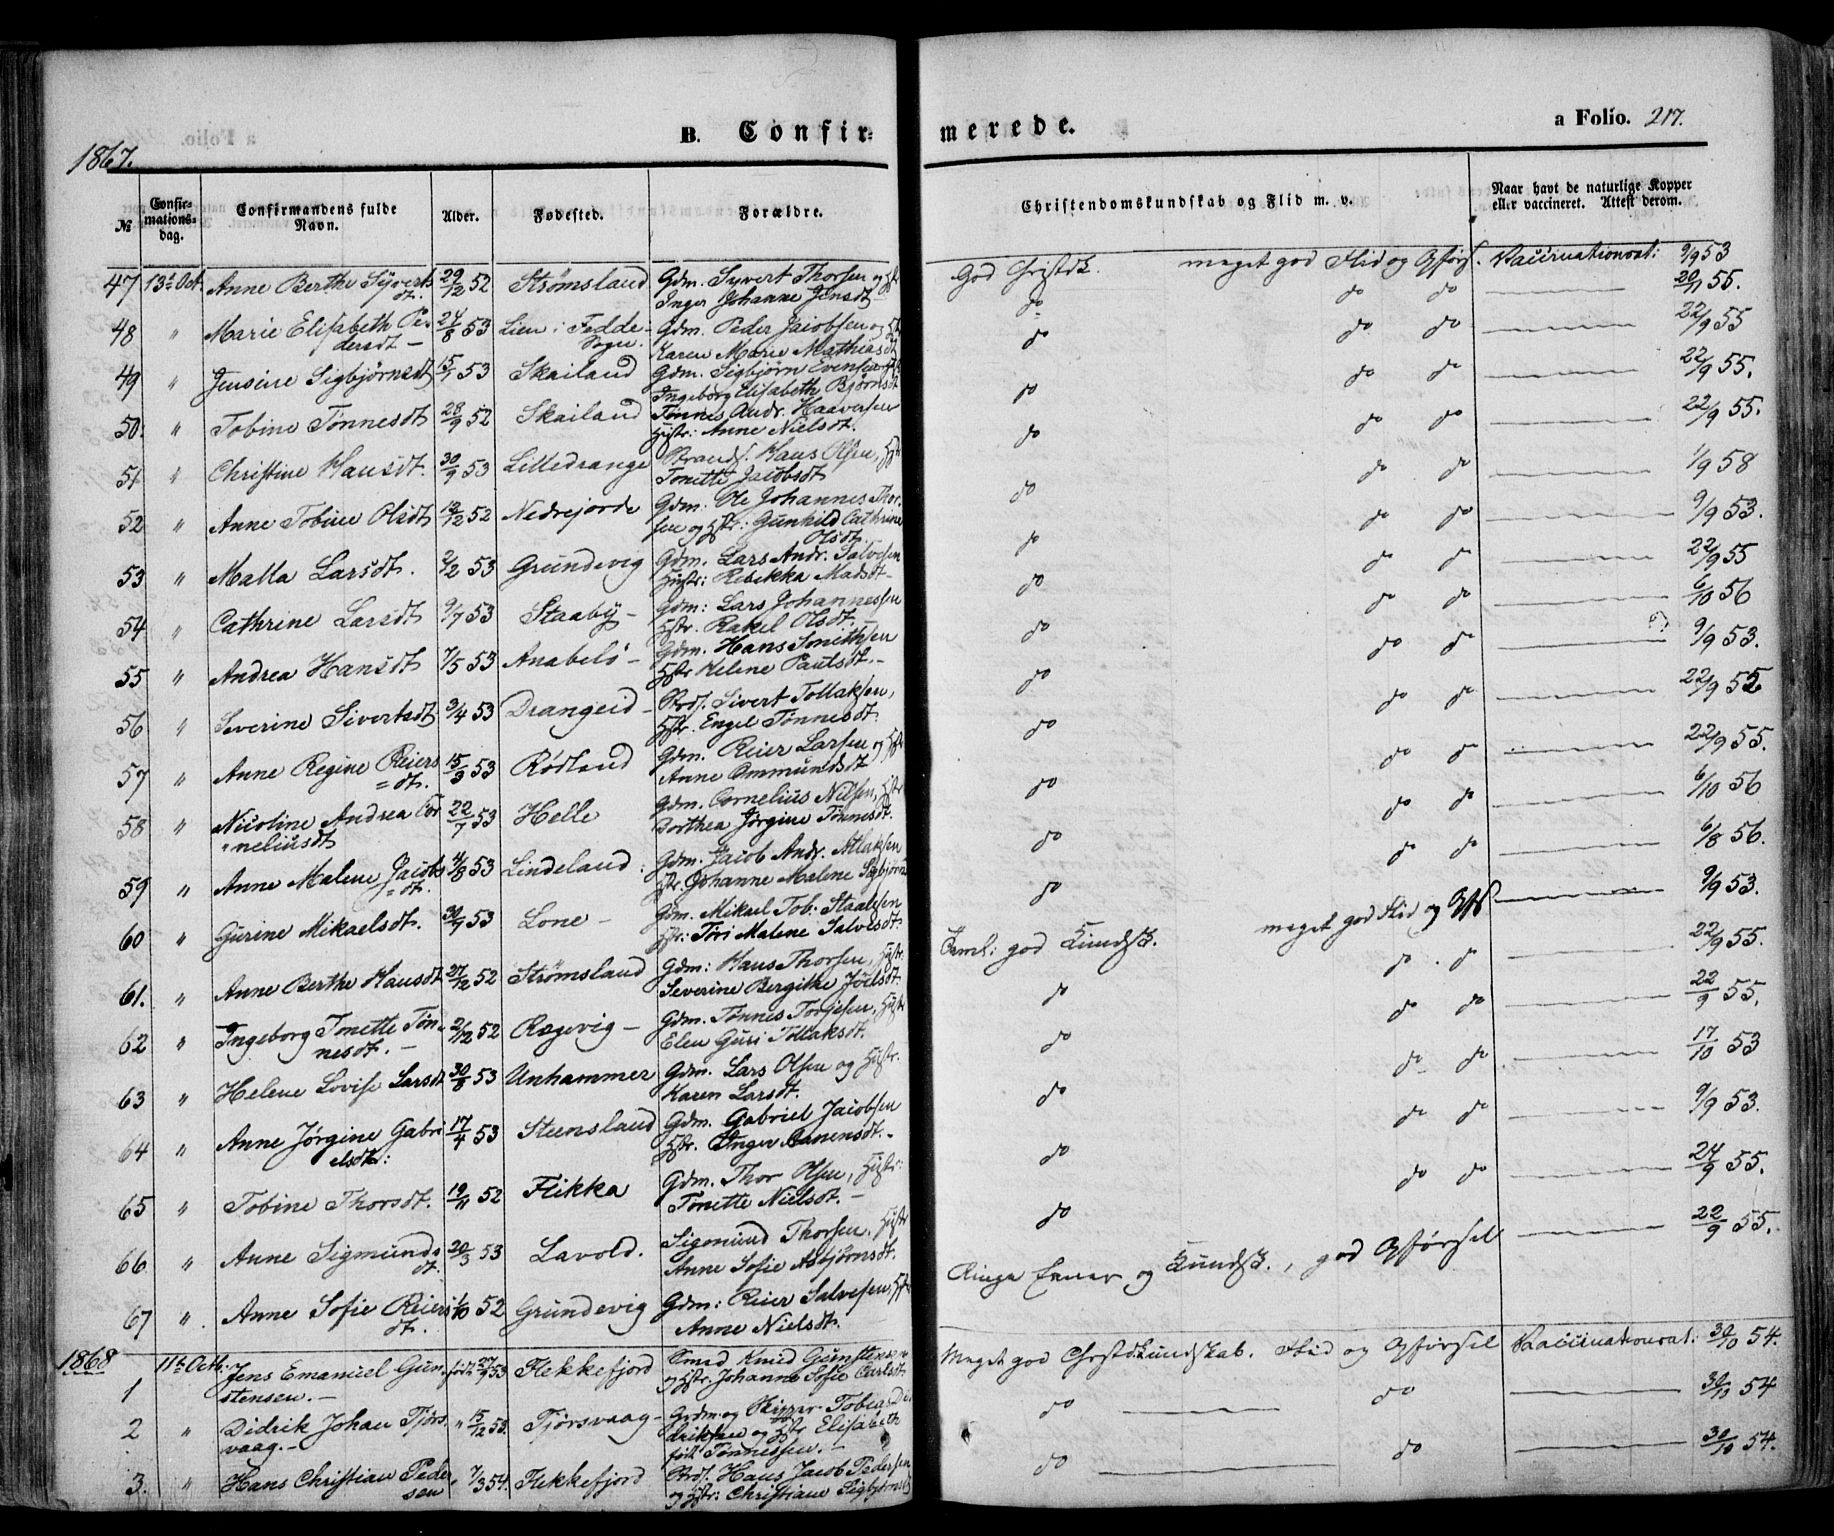 1867.
B. Confirmerede.
a Folio. 217.
№
Confirmations-dag.
Confirmandens fulde Navn.
Alder.
Fødested.
Forældre.
Christendomskundskab og Flid m. v.
Naar havt de naturlige Kopper eller vaccineret. Attest derom.
47 13de Oct. Anne Berthe Syverts dt. 29/12 52 Strømsland Gdm. Syvert Thorsen og Hstr Inger Johanne Jensdt God Christdk. meget god Flid og Opførs. Vaccinationsat: 9/9 53
48 " Marie Elisabeth Pedersdt – 24/8 53 Lien i Fedde Sogn. Gdm. Peder Jacobsen og Hst Karen Marie Mathiasdt do do do 20/11 55.
49 " Jensine Sigbjørnsdt 15/1 53 Skailand Gdm. Sigbjørn Evensen Ingeborg Elisabeth Bjørnsdt do do do 22/9 55
50. " Tobine Tønnesdt 28/9 52 Skailand Tønnes Andr. Haaversen Hstr: Anne Nielsdt. do do do 22/9 55.
51 " Christine Hansdt. 30/9 53 Lilledrange Strands. Hans Olsen, Hst Tonette Jacobsdt do do do 22/9 55.
52 " Anne Tobine Olsdt 18/12 52 Nedrejorde Gdm. Ole Johannes Thorsen og Hstr: Gunhild Cathrine Olsdt. do do do 1/9 58
53 " Malla Larsdt. 2/2 53 Grundevig Gdm. Lars Andr. Salvesen Hustr: Rebekka Madsdt – do do do 9/9 53.
54 " Cathrine Larsdt 9/7 53 Staaby – Gdm: Lars Johannessen Hstr. Rakel Olsdt. – do do do 22/9 55
55 " Andrea Hansdt 7/5 53 Anabelø – Gdm. Hans Smithsen Hstr Helene Paulsdt. – do do do 6/10 56
56 " Severine Sivertsdt 3/4 53 Drangeid – Strds. Sivert Tollaksen, Hstr. Engel Tønnesdt. do do do 9/9 53.
57 " Anne Regine Reiers =dt. 15/3 53 Rødland Gdm. Reier Larsen og Hstr Anne Ommundsdt do do do 22/9 55
58 " Nicoline Andrea Cor neliusdt 22/7 53 Helle Gdm. Cornelius Nilsen, Hstr Dorthea Jørgine Tønnesdt. do do do 22/9 55.
59 " Anne Malene Jacobs =dt. 4/8 53 Lindeland Gdm. Jacob Andr. Atlaksen Hstr. Johanne Malene Sigbjørns do do do 6/10 56
60 " Gurine Mikaelsdt. 30/7 53 Lone – Gdm. Mikael Tob. Staalesen Hstr: Tøri Malene Salvesdt. do do do 6/8 56.
61. " Anne Berthe Hansdt 27/12 52 Strømsland Gdm: Hans Thorsen, Hstr. Severine Bergithe Joelsdt. Teml: god Kundsk. meget god Flid og Opfs 9/9 53.
62 " Ingeborg Tonette Tønnesdt. – 2/12 52 Rægevig – Gdm. Tønnes Torjesen, Hstr Elen Guri Tollaksdt. do do do 22/9 55.
63 " Helene Lovise Larsdt 30/8 53 Unhammer Gdm. Lars Olsen og Hustr. Karen Larsdt. do do do 22/9 55.
64 " Anne Jørgine Gabri elsdtr: 17/4 53 Steensland Gdm. Gabriel Jacobsen Hstr. Inger Aanensdt. – do do do 17/10 53
65 " Tobine Thorsdt. 19/11 52 Flikka Gdm. Thor Olsen, Hstr: Tonette Nielsdt. – do do do 9/9 53.
66 " Anne Sigmunds dt. 20/3 53 Lavold. Sigmund Thorsen, Hstr Anne Sofie Asbjørnsdt. do do do 24/9 55.
67 " Anne Sofie Reiers dt. 1/10 52 Grundevig Gdm: Reier Salvesen, Hstr Anne Nielsdt. Ringe Evner og Kundsk., god Opførsel 22/9 55.
1868
1 11te Octb: Jens Emanuel Gunstensen. – født 27/9 53 Flekkefjord Smed Knud Gunstensen og Hstr. Johanne Sofie Carlsdt Meget god Christdkundskab. Flid og Opførsel Vaccinationsat: 30/10 54.
2 " Didrik Johan Tjørsvaag. – " 15/12 53. Tjørsvaag – Grdm. og Skipper Tobias Didriksen og Hstr Elisabeth født Tønnessen. – do do 30/10 54
3. " Hans Christian Pedersen " 7/3 54. Flekkefjord Strds. Hans Jacob Pedersen og Hstr: Christiane Sigbjørnsdt do do 30/10 54.